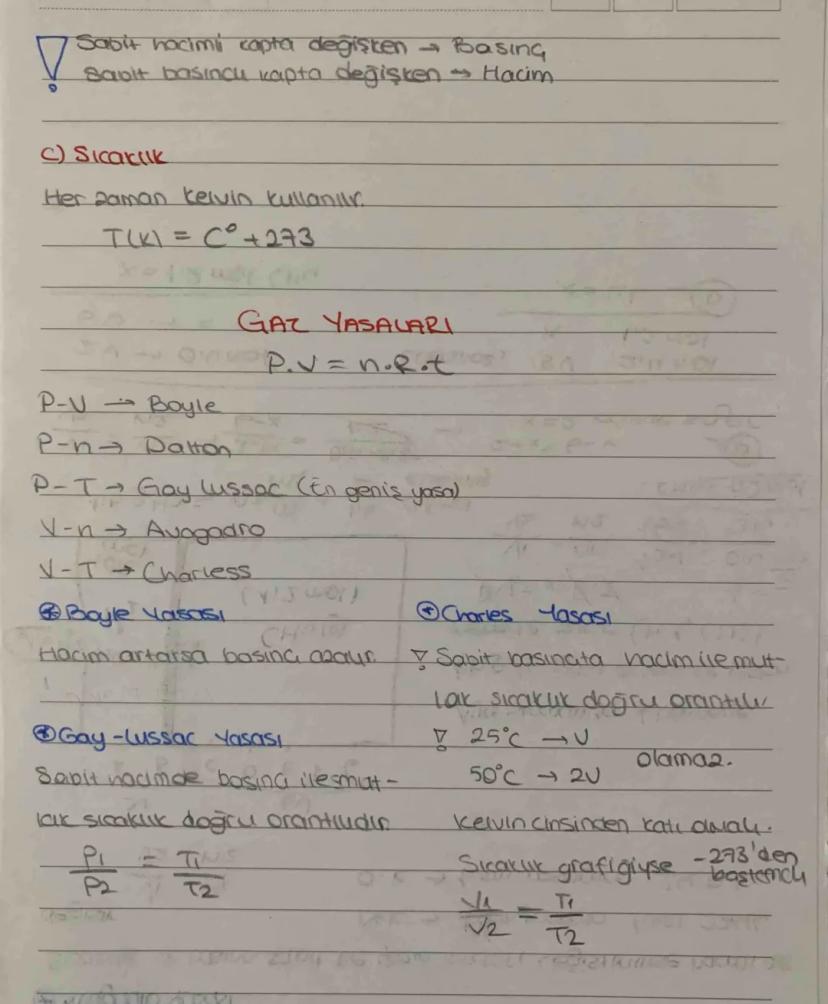 ! Sabit hacimli kapta değişken → Basınç
Sabit basınçlı kapta değişken → Hacim
c) Sıcaklık
Her zaman kelvin kullanılır.
T(K) = C° + 273
GAZ YASALARI
P.V = n.R.t
P-V → Boyle
P-n → Dalton
P-T → Gay lussac (En geniş yasa)
V-n → Avagadro
V-T → Charless
* Boyle Yasası
Hacim artarsa basınç azalır.
* Gay-lussac Yasası
Sabit hacimde basınç ile mut-
lak sıcaklık doğru orantılıdır.
P1/P2 = T1/T2
* Charles Yasası
! Sabit basınçta hacim ile mut-
lak sıcaklık doğru orantılı
! 25°C → V
50°C → 2V olamaz.
Kelvin cinsinden katı olmalı.
Sıcaklık grafiğiyse -273'den
başlamalı
V1/V2 = T1/T2